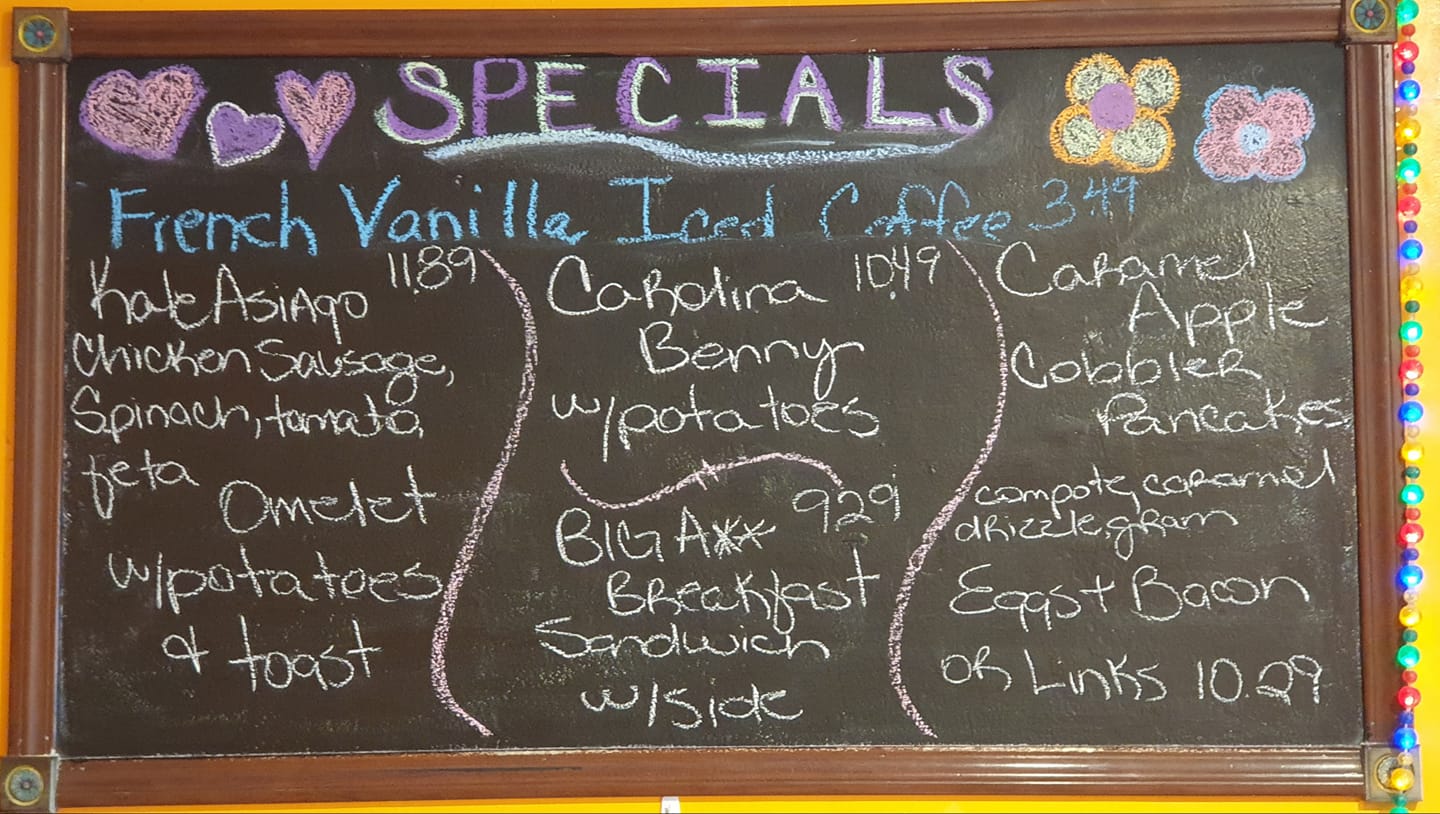 SPECIALS
French Vanilla Iced Coffee 3.49
11.89
Kale Asiago
Chicken Sausage,
Spinach, tomato,
feta
Omelet
w/potatoes
& toast
Carolina 10.49
Benny
w/potatoes
9.29
BIG A**
Breakfast
Sandwich
w/side
Caramel
Apple
Cobbler
Pancakes
compote, caramel
drizzle, gram
Eggs + Bacon
or Links 10.29